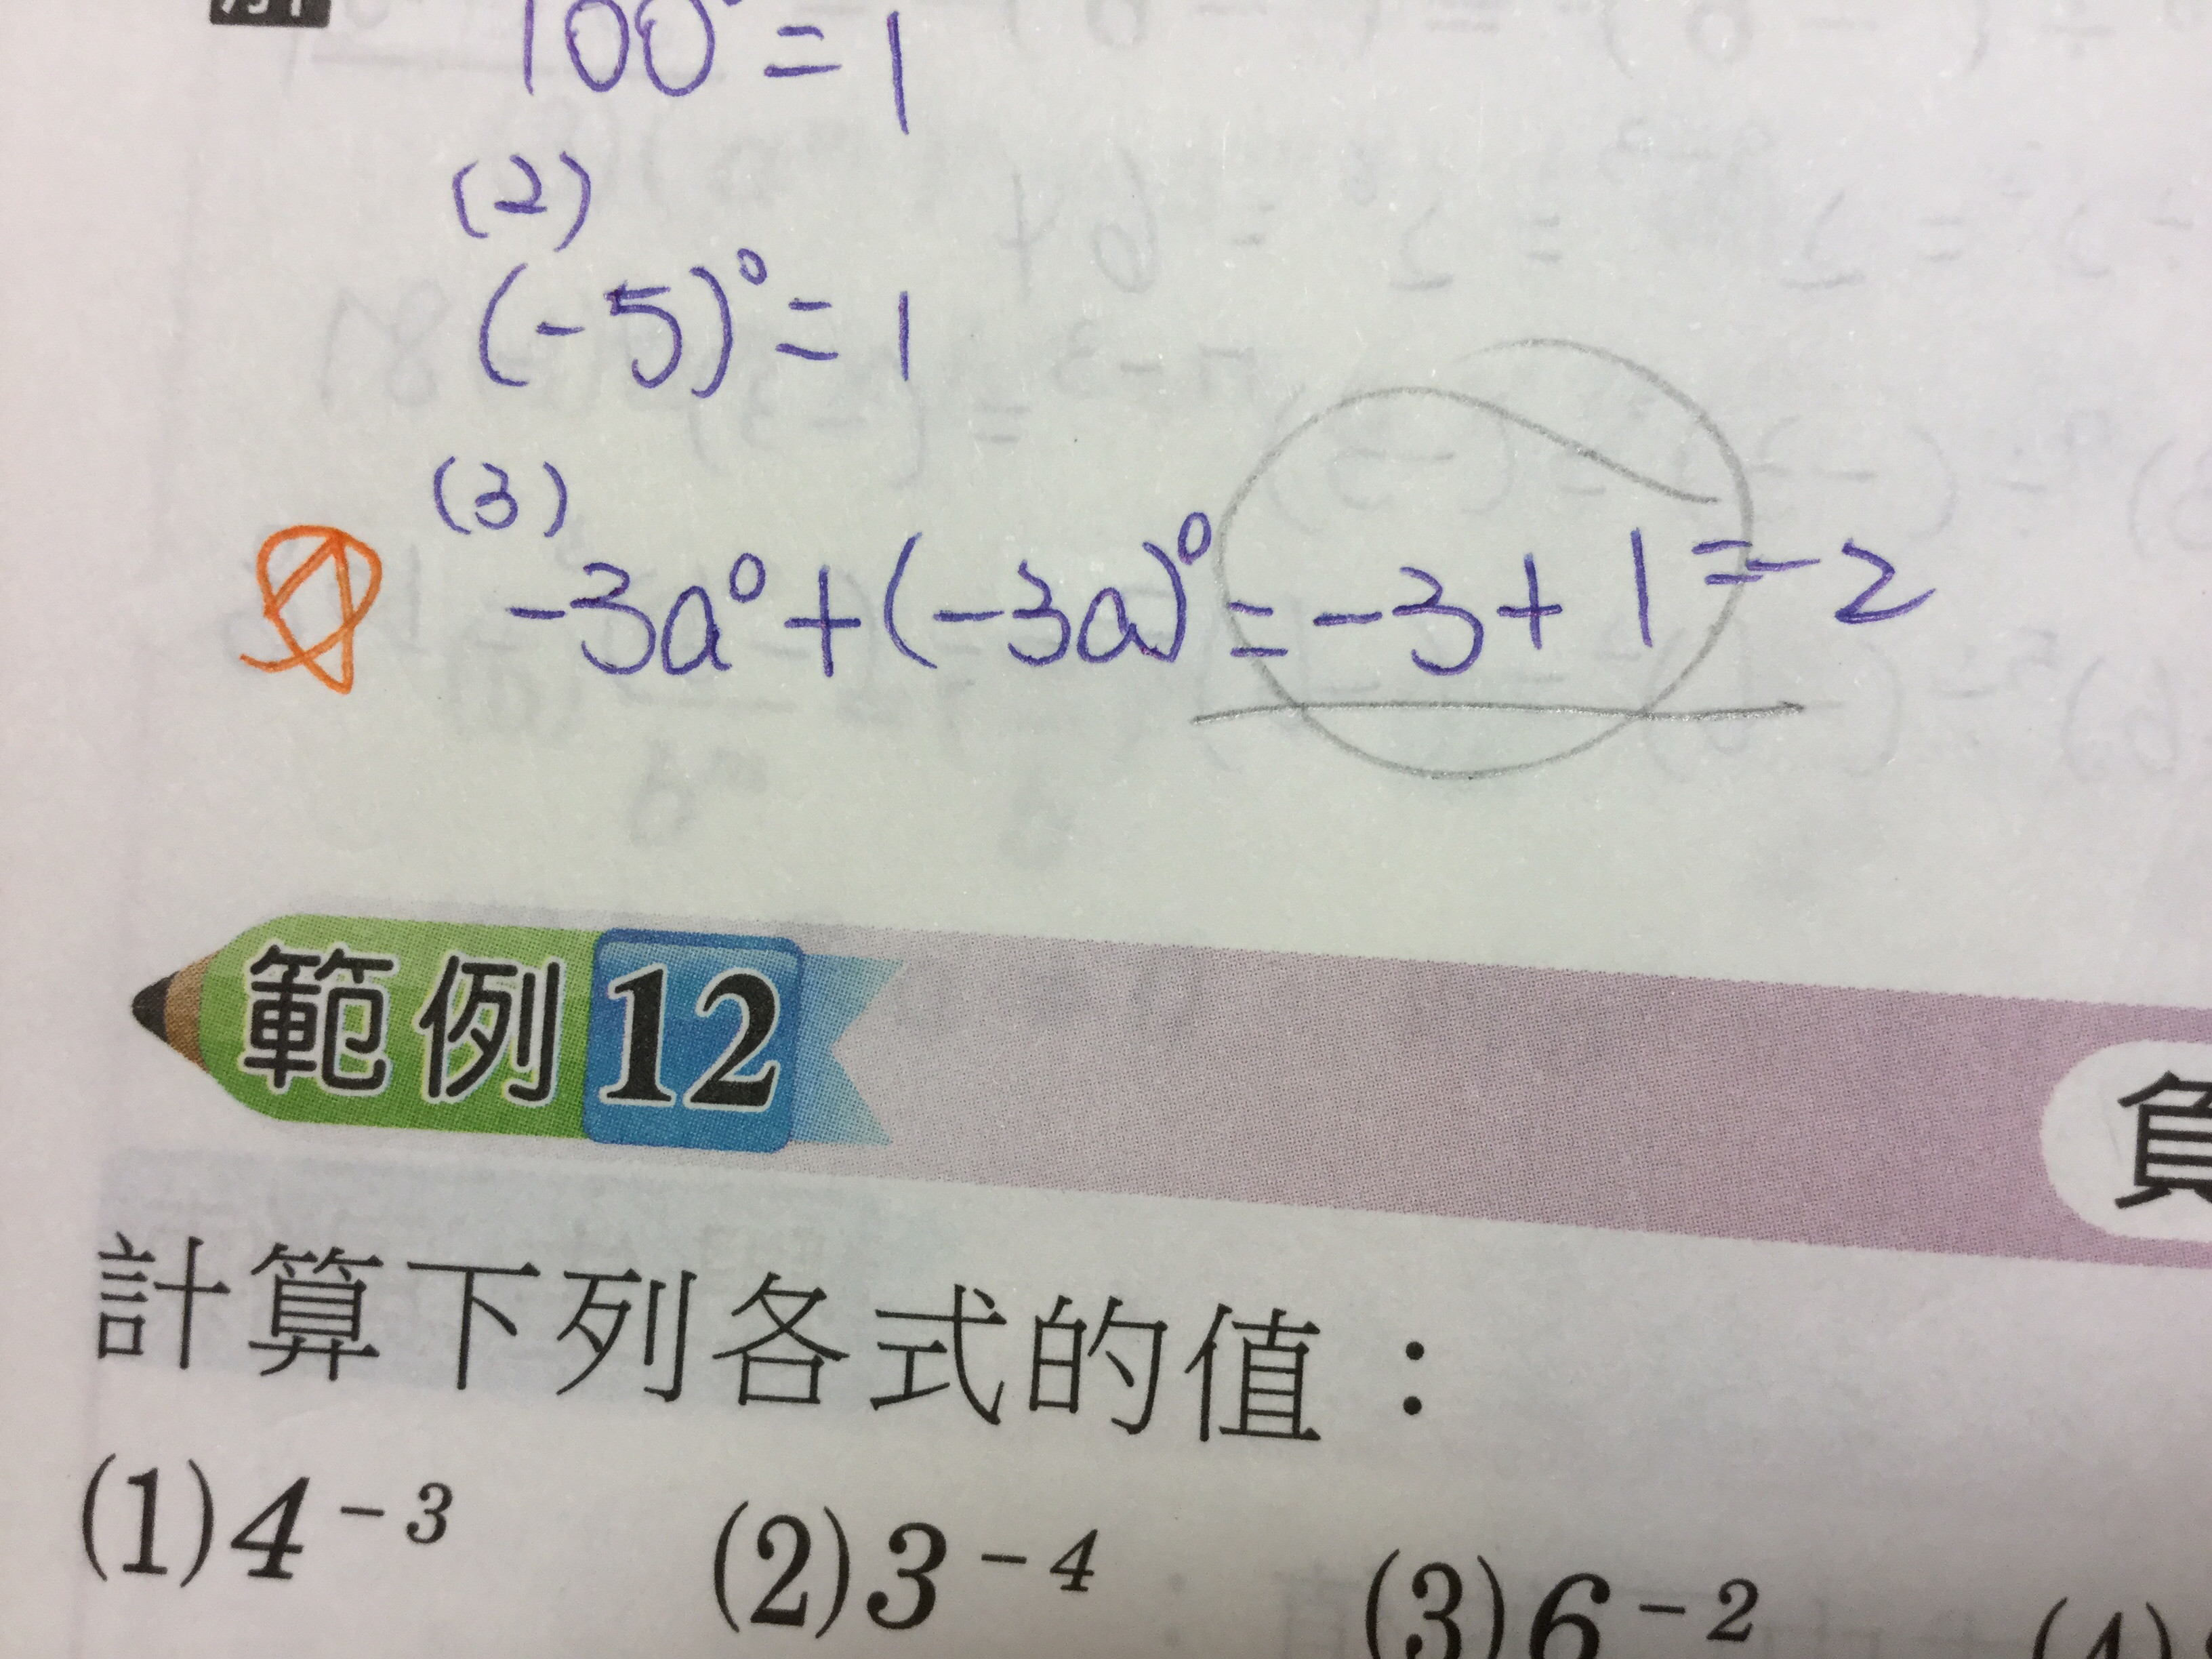 100⁰ = 1
(2)
(-5)⁰ = 1
(3)
-3a⁰ + (-3a)⁰ = -3 + 1 = -2
範例 12
負
計算下列各式的值：
(1) 4⁻³ (2) 3⁻⁴ (3) 6⁻²